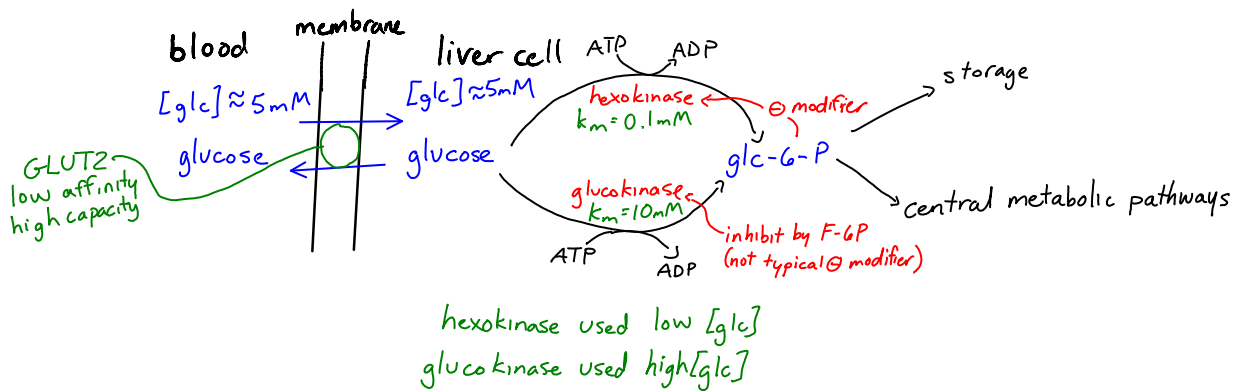 blood
membrane
liver cell
[glc] ≈ 5mM
[glc] ≈ 5mM
glucose
glucose
GLUT2
low affinity
high capacity
ATP
ADP
hexokinase
km = 0.1mM
⊖ modifier
glc-6-P
storage
central metabolic pathways
glucokinase
km = 10mM
ATP
ADP
inhibit by F-6P
(not typical ⊖ modifier)
hexokinase used low [glc]
glucokinase used high [glc]